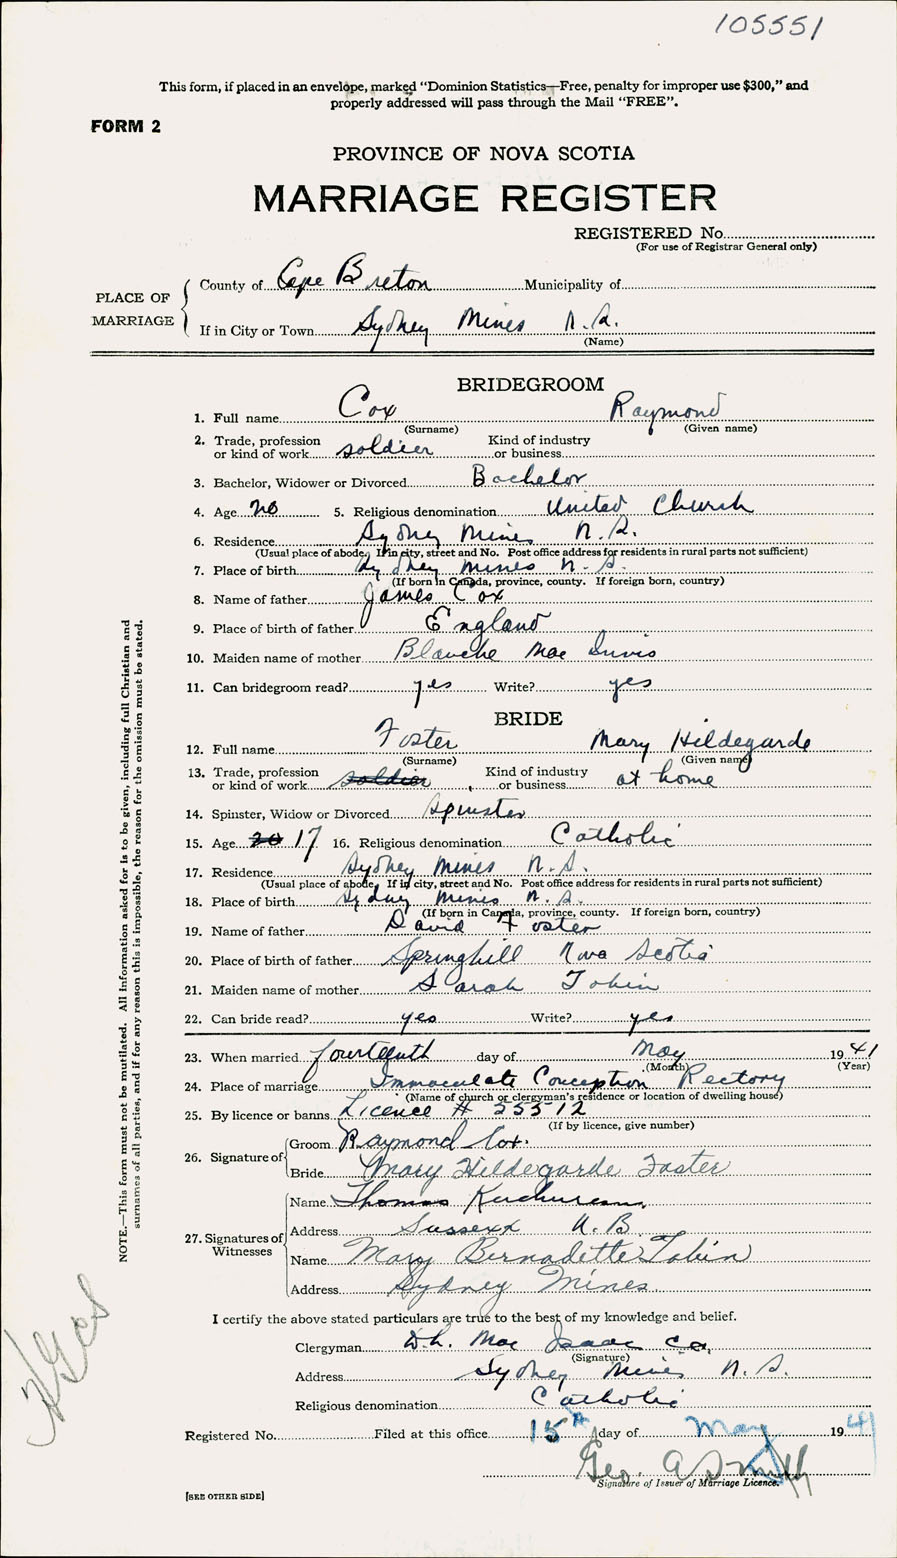 105551
This form, if placed in an envelope, marked "Dominion Statistics—Free, penalty for improper use $300," and
properly addressed will pass through the Mail "FREE".
FORM 2
PROVINCE OF NOVA SCOTIA
MARRIAGE REGISTER
REGISTERED No.
(For use of Registrar General only)
PLACE OF MARRIAGE
County of Cape Breton Municipality of
If in City or Town Sydney Mines N.S.
(Name)
BRIDEGROOM
1. Full name Cox Raymond
(Surname) (Given name)
2. Trade, profession or kind of work soldier Kind of industry or business
3. Bachelor, Widower or Divorced Bachelor
4. Age 20 5. Religious denomination United Church
6. Residence Sydney Mines N.S.
(Usual place of abode. If in city, street and No. Post office address for residents in rural parts not sufficient)
7. Place of birth Sydney Mines N.S.
(If born in Canada, province, county. If foreign born, country)
8. Name of father James Cox
9. Place of birth of father England
10. Maiden name of mother Blanche Mae
11. Can bridegroom read? yes Write? yes
BRIDE
12. Full name Foster Mary Hildegarde
(Surname) (Given name)
13. Trade, profession or kind of work soldier Kind of industry or business at home
14. Spinster, Widow or Divorced Spinster
15. Age 20 17 16. Religious denomination Catholic
17. Residence Sydney Mines N.S.
(Usual place of abode. If in city, street and No. Post office address for residents in rural parts not sufficient)
18. Place of birth Sydney Mines N.S.
(If born in Canada, province, county. If foreign born, country)
19. Name of father David Foster
20. Place of birth of father Springhill Nova Scotia
21. Maiden name of mother Sarah Tobin
22. Can bride read? yes Write? yes
23. When married fourteenth day of May 1941
(Month) (Year)
24. Place of marriage Immaculate Conception Rectory
(Name of church or clergyman's residence or location of dwelling house)
25. By licence or banns Licence # 55512
(If by licence, give number)
26. Signature of
Groom Raymond Cox.
Bride Mary Hildegarde Foster
27. Signatures of Witnesses
Name Thomas
Address Sussexx N.B.
Name Mary Bernadette Tobin
Address Sydney Mines
I certify the above stated particulars are true to the best of my knowledge and belief.
Clergyman D.h. Mac Isaac
(Signature)
Address Sydney Mines N.S.
Religious denomination Catholic
Registered No. Filed at this office 15th day of May 1941
Geo. A Smith
Signature of Issuer of Marriage Licence.
[SEE OTHER SIDE]
NOTE.—This form must not be mutilated. All Information asked for is to be given, including full Christian and
surnames of all parties, and if for any reason this is impossible, the reason for the omission must be stated.